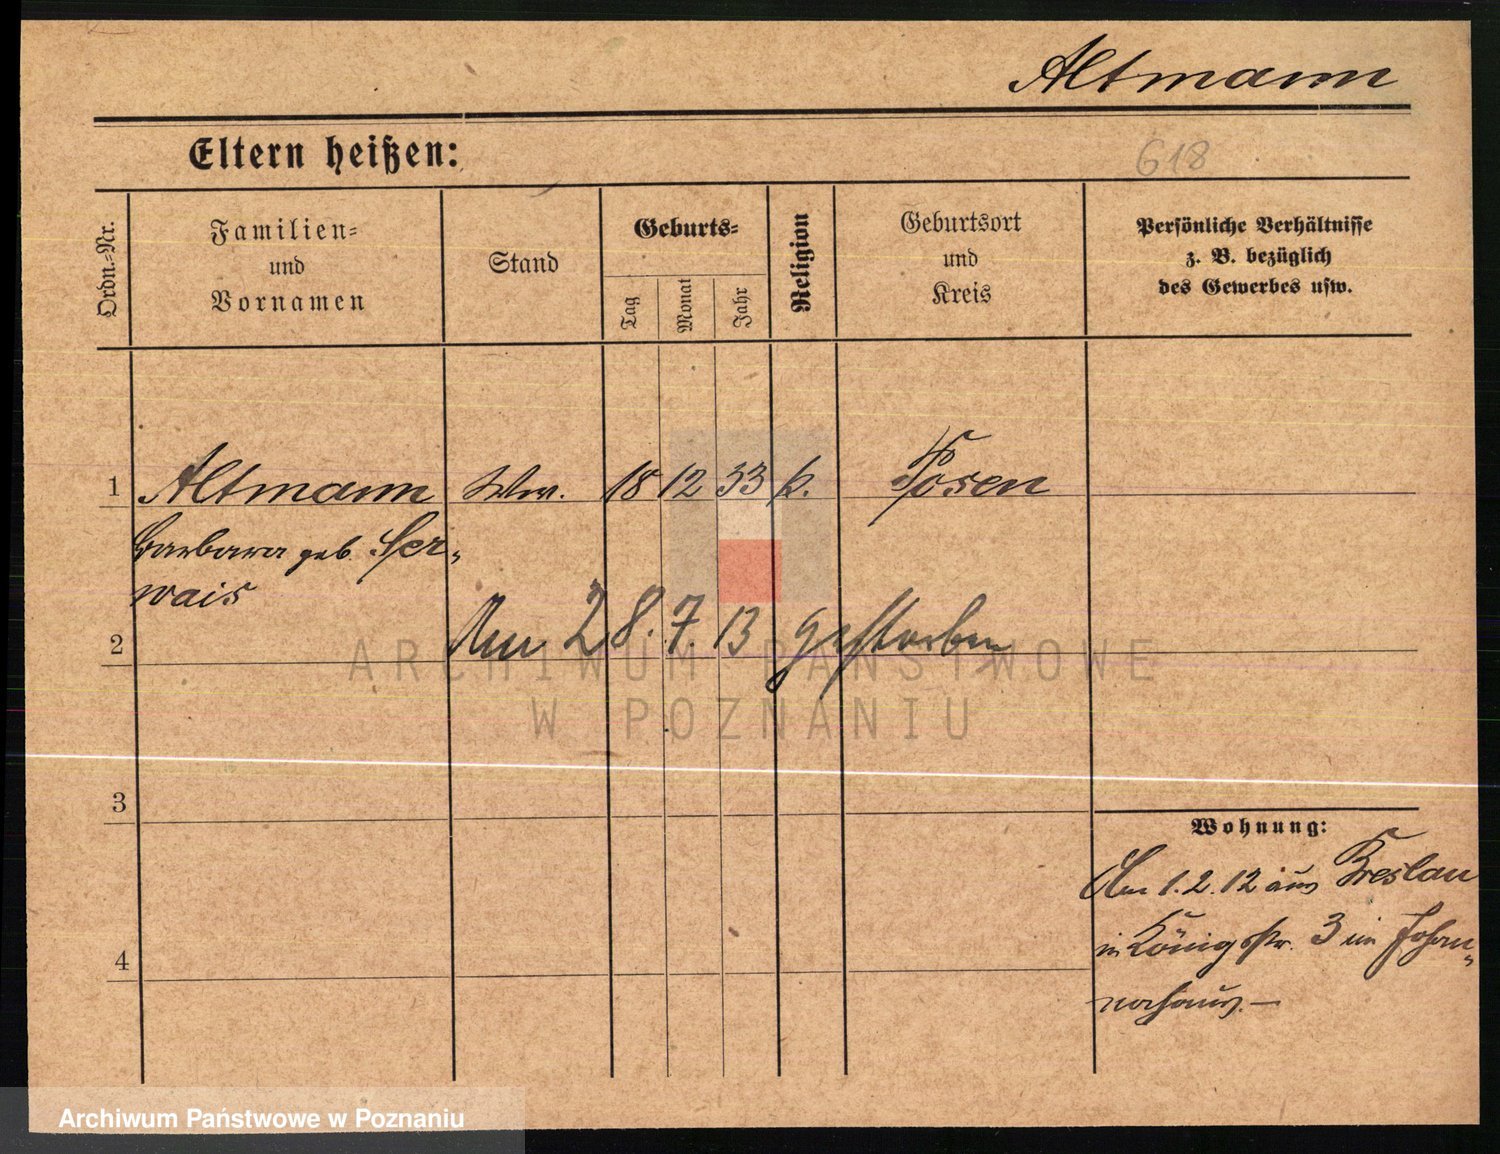 Altmann
Eltern heißen:
618
Ordn.-Nr.
Familien-
und
Vornamen
Stand
Geburts-
Tag
Monat
Jahr
Religion
Geburtsort
und
Kreis
Persönliche Verhältnisse
z. B. bezüglich
des Gewerbes usw.
1 Altmann Ww. 18 12 33 k. Posen
Barbara geb. Ser-
wais
2 Am 28. 7. 13 gestorben
3
Wohnung:
Am 1. 2. 12 aus Breslau
in Königstr. 3 im Johan-
nahaus. —
4
ARCHIWUM PAŃSTWOWE
W POZNANIU
Archiwum Państwowe w Poznaniu